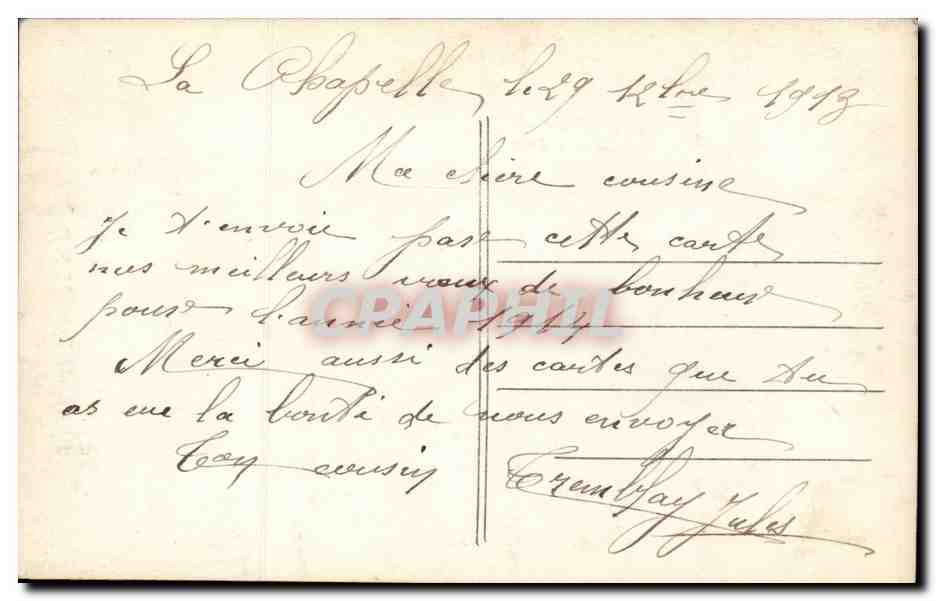 La Chapelle, le 29 12bre 1913
Ma chère cousine
Je t'envoie par cette carte
mes meilleurs vœux de bonheur
pour l'année 1914
CPAPHIL
Merci aussi des cartes que tu
as eue la bonté de nous envoyer
Ton cousin Tremblay Jules